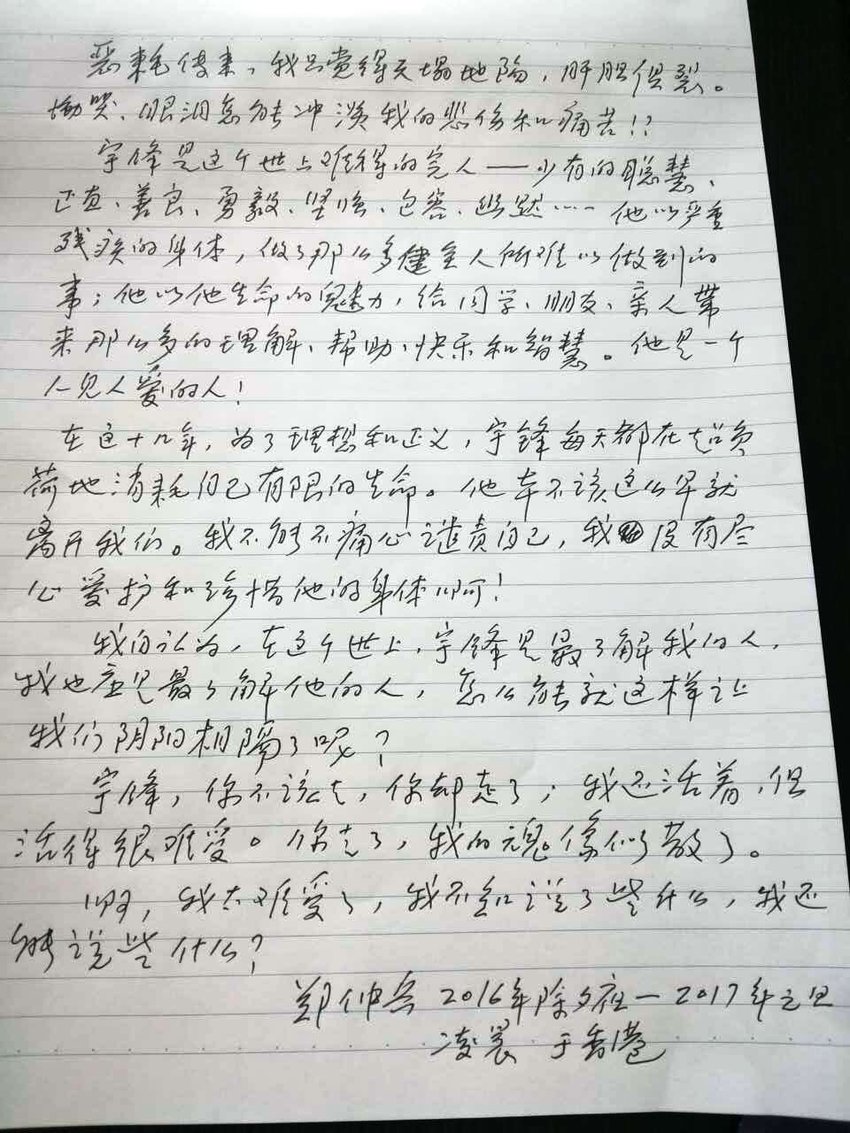 恶耗传来，我只觉得天塌地陷，肝胆俱裂。
恸哭、眼泪怎能冲淡我的悲伤和痛苦！？
宇锋是这个世上难得的完人——少有的聪慧、
正直、善良、勇毅、坚强、包容、幽默…… 他以严重
残疾的身体，做了那么多健全人所难以做到的
事；他以他生命的魅力，给同学、朋友、亲人带
来那么多的理解、帮助、快乐和智慧。他是一个
人见人爱的人！
在这十几年，为了理想和正义，宇锋每天都在超负
荷地消耗自己有限的生命。他本不该这么早就
离开我们。我不能不痛心谴责自己，我没有尽
心爱护和珍惜他的身体啊！
我自认为，在这个世上，宇锋是最了解我的人，
我也应是最了解他的人，怎么能就这样让
我们阴阳相隔了呢？
宇锋，你不该走，你却走了；我还活着，但
活得很难受。你走了，我的魂像似散了。
啊，我太难受了，我不知说了些什么，我还
能说些什么？
郑仲兵 2016年除夕夜—2017年元旦
凌晨 于香港